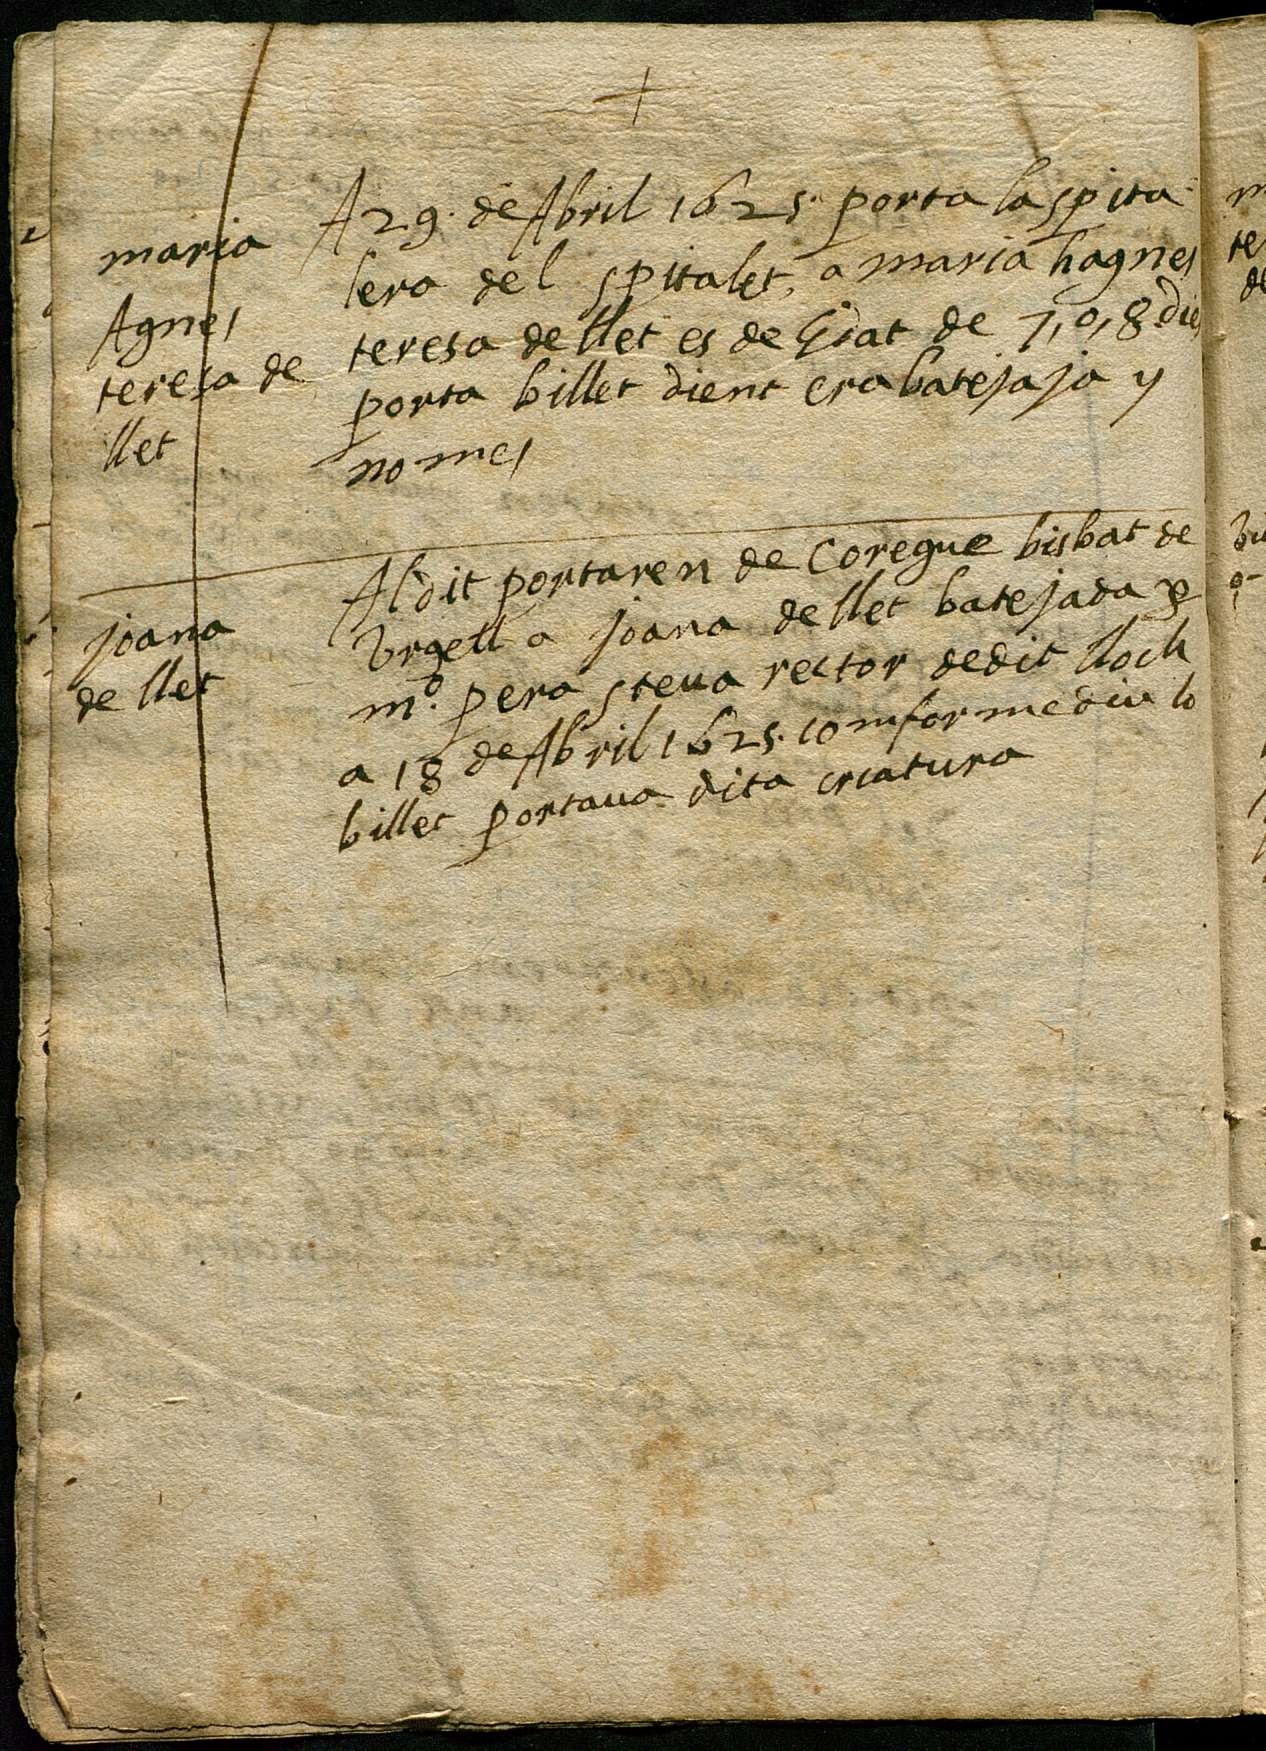 maria
Agnes
teresa de
llet
A 29. de Abril 1625. porta la spita
lera del spitalet, a maria hagnes
teresa de llet es de hedat de 7, o, 8 dies
porta billet dient era batejaja y
no mes
joana
de llet
Al dit portaren de Coregue bisbat de
Vrgell a joana de llet batejada p
mº. pera steua rector de dit lloch
a 18 de Abril 1625. comforme diu lo
billet portaua dita criatura